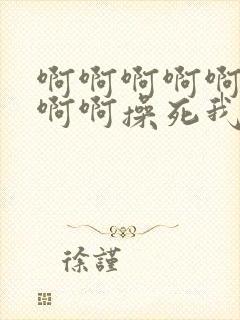 啊啊啊啊啊
啊啊操死我
徐謹